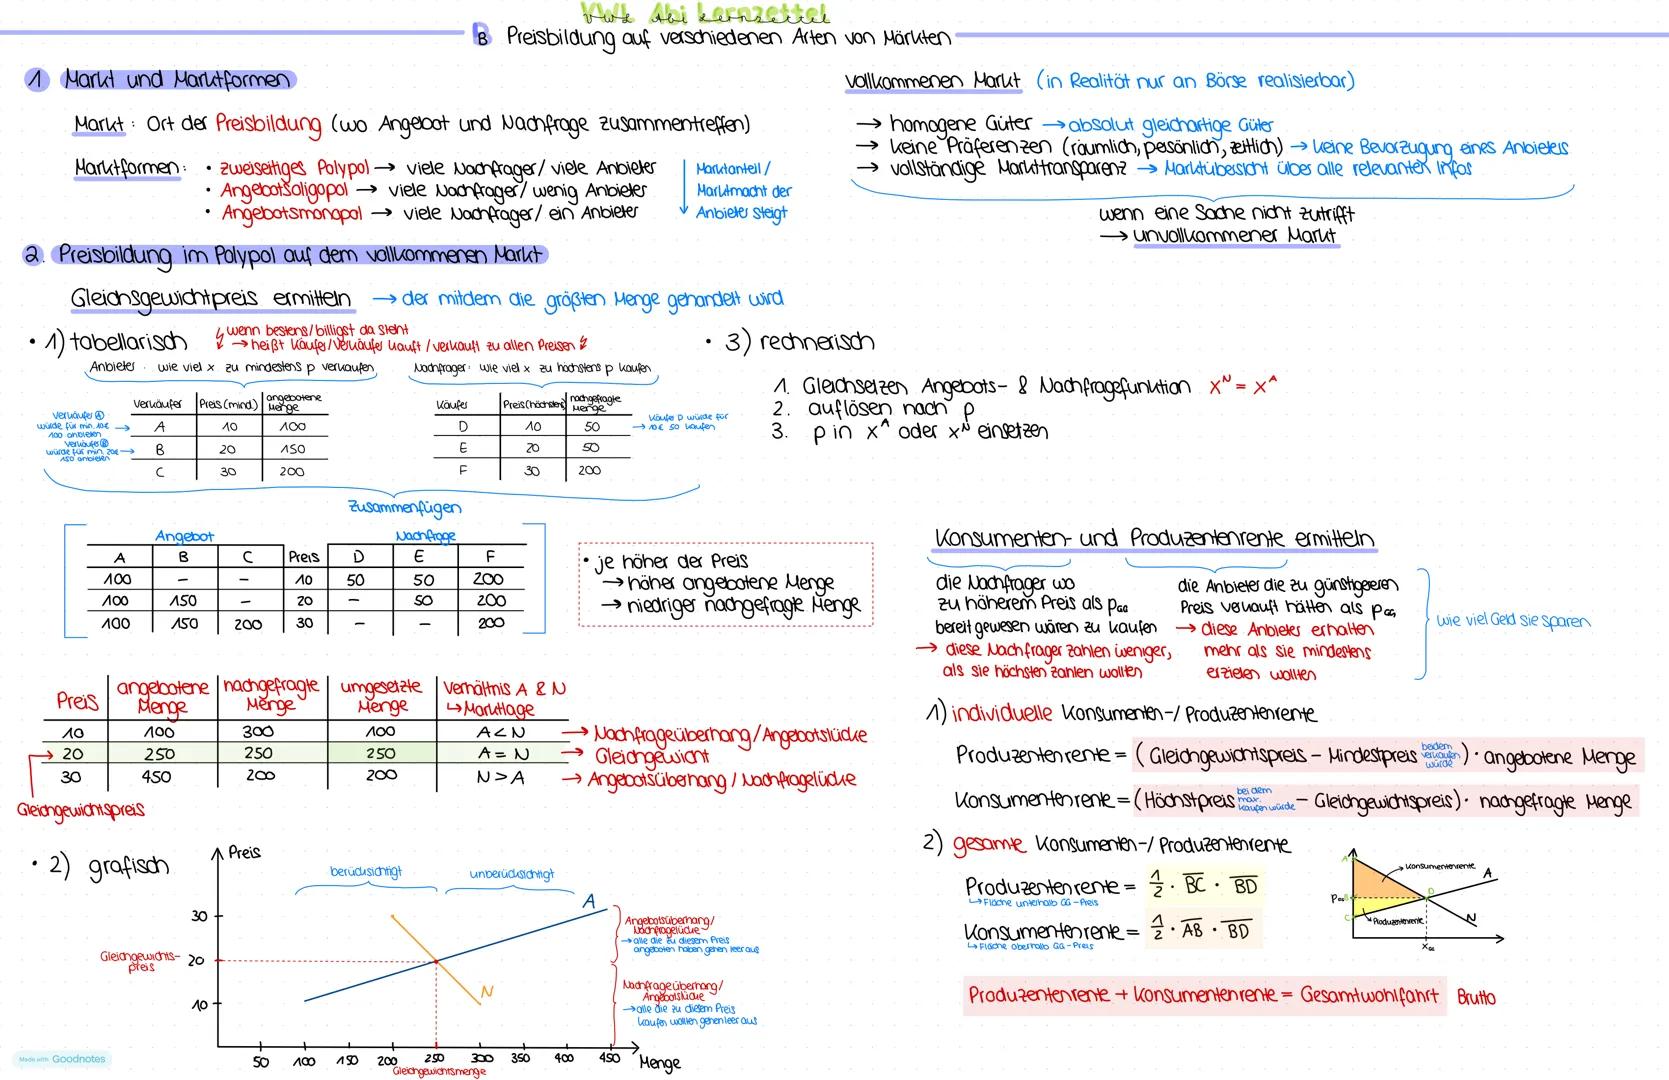 VWL Abi Lernzettel
B Preisbildung auf verschiedenen Arten von Märkten
1 Markt und Marktformen
Markt: Ort der Preisbildung (wo Angebot und Nachfrage zusammentreffen)
Marktformen: • zweiseitiges Polypol → viele Nachfrager/ viele Anbieter
• Angebotsoligopol → viele Nachfrager/ wenig Anbieter
• Angebotsmonopol → viele Nachfrager/ ein Anbieter
Marktanteil /
Marktmacht der
Anbieter steigt
vollkommenen Markt (in Realität nur an Börse realisierbar)
→ homogene Güter → absolut gleichartige Güter
→ keine Präferenzen (räumlich, pesönlich, zeitlich) → keine Bevorzugung eines Anbieters
→ vollständige Markttransparenz → Marktübesicht über alle relevanten Infos
wenn eine Sache nicht zutrifft
→ unvollkommener Markt
2. Preisbildung im Polypol auf dem vollkommenen Markt
Gleichsgewichtpreis ermitteln → der mitdem die größten Menge gehandelt wird
• 1) tabellarisch
wenn bestens/billigst da steht
→ heißt Käufer/Verkäufer kauft / verkauft zu allen Preisen
Anbieter: wie viel x zu mindestens p verkaufen
Verkäufer Preis (mind.) angebotene Menge
A 10 100
B 20 150
C 30 200
Verkäufer A
würde für min. 10€
100 anbieten
Verkäufer B
würde für min. 20€
150 anbieten
Nachfrager: wie viel x zu höchstens p kaufen
Käufer Preis (höchstens) nachgefragte Menge
D 10 50
E 20 50
F 30 200
→ Käufer D würde für
10€ 50 kaufen
Zusammenfügen
Angebot Nachfrage
A B C Preis D E F
100 – – 10 50 50 200
100 150 – 20 – 50 200
100 150 200 30 – – 200
• je höher der Preis
→ höher angebotene Menge
→ niedriger nachgefragte Menge
Preis angebotene Menge nachgefragte Menge umgesetzte Menge Verhältnis A & N
↳ Marktlage
10 100 300 100 A < N → Nachfrageüberhang/Angebotslücke
20 250 250 250 A = N → Gleichgewicht
30 450 200 200 N > A → Angebotsüberhang / Nachfragelücke
Gleichgewichtspreis
• 2) grafisch
Preis
berücksichtigt unberücksichtigt
30
20
10
Gleichgewichts-
preis
A
N
50 100 150 200 250 300 350 400 450 Menge
Gleichgewichtsmenge
Angebotsüberhang/
Nachfragelücke
→ alle die zu diesem Preis
angeboten haben gehen leer aus
Nachfrageüberhang/
Angebotslücke
→ alle die zu diesem Preis
kaufen wollten gehen leer aus
• 3) rechnerisch
1. Gleichsetzen Angebots- & Nachfragefunktion xᴺ = xᴬ
2. auflösen nach p
3. p in xᴬ oder xᴺ einsetzen
Konsumenten- und Produzentenrente ermitteln
die Nachfrager wo
zu höherem Preis als pGG
bereit gewesen wären zu kaufen
→ diese Nachfrager zahlen weniger,
als sie höchsten zahlen wollten
die Anbieter die zu günstigeren
Preis verkauft hätten als pGG
→ diese Anbieter erhalten
mehr als sie mindestens
erzielen wollten
wie viel Geld sie sparen
1) individuelle Konsumenten-/ Produzentenrente
Produzentenrente = (Gleichgewichtspreis – Mindestpreis bei dem verkaufen würde) · angebotene Menge
Konsumentenrente = (Höchstpreis bei dem max. kaufen würde – Gleichgewichtspreis) · nachgefragte Menge
2) gesamte Konsumenten-/ Produzentenrente
Produzentenrente = 1/2 · BC · BD
↳ Fläche unterhalb GG-Preis
Konsumentenrente = 1/2 · AB · BD
↳ Fläche oberhalb GG-Preis
A
Konsumentenrente
A
pGG B
D
C
Produzentenrente
N
xGG
Produzentenrente + Konsumentenrente = Gesamtwohlfahrt Brutto
Made with Goodnotes